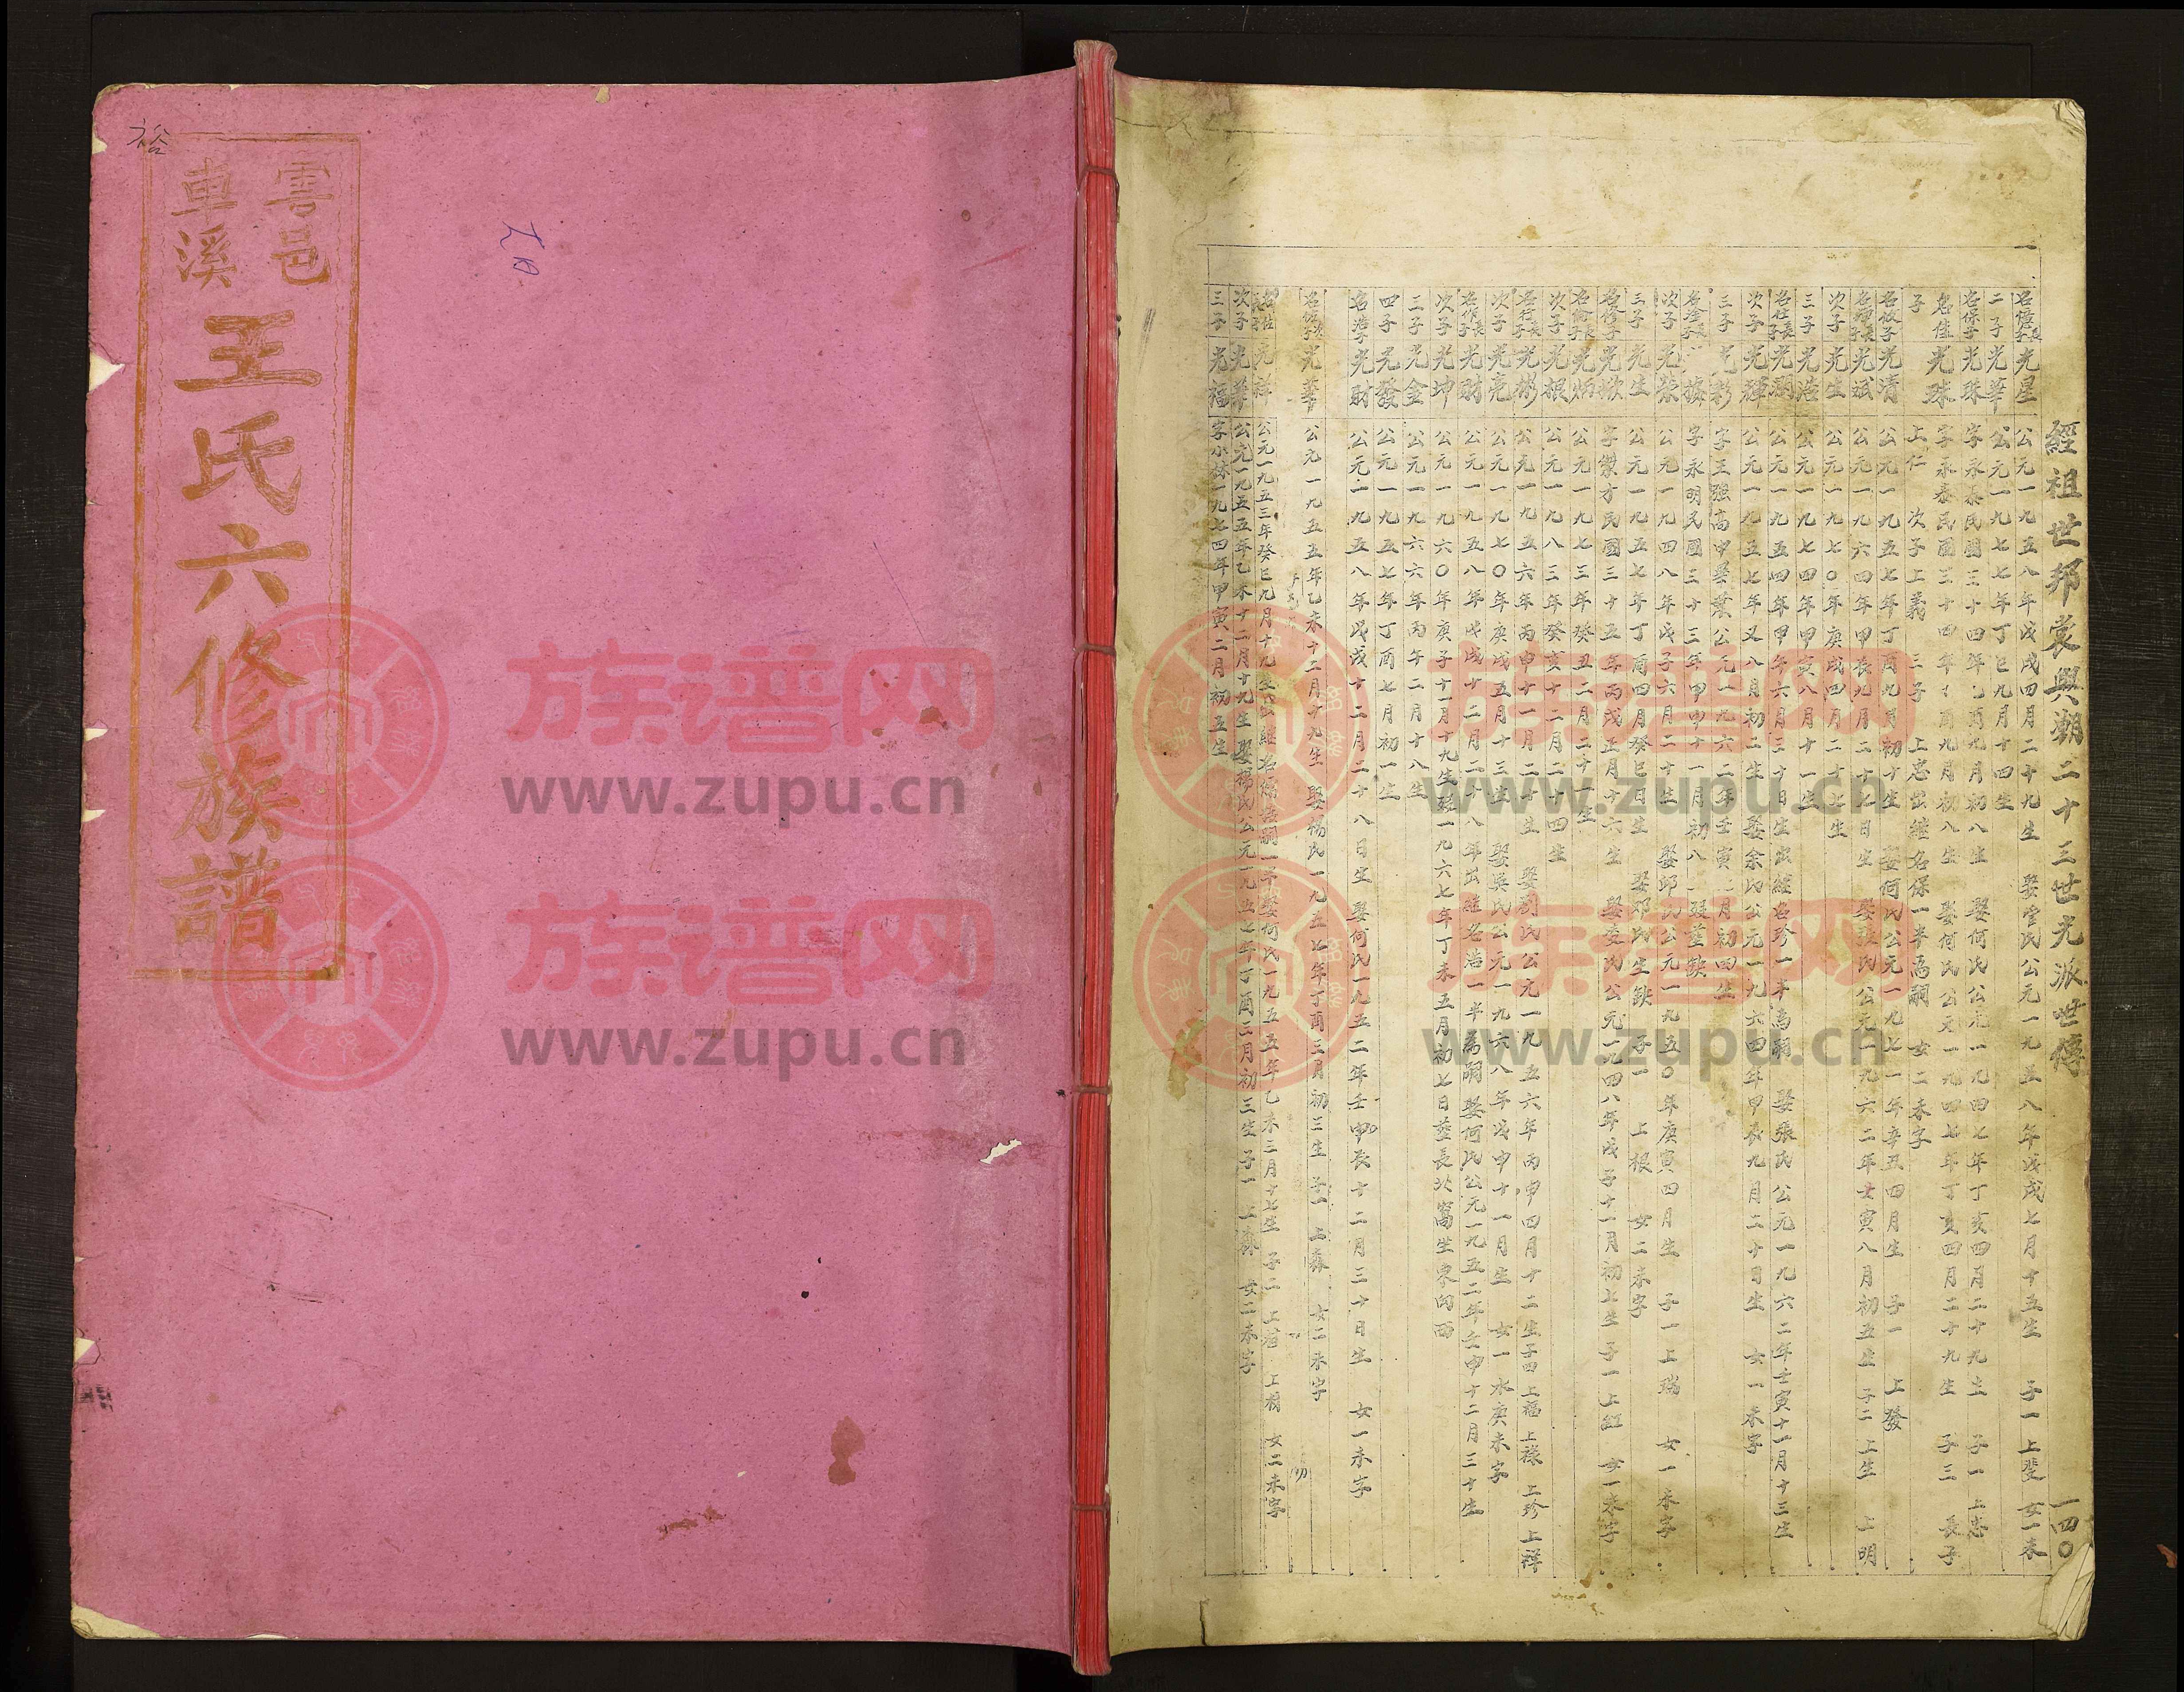 雩邑
車溪
王氏六修族譜
裕
經祖世邦裳興潮二十三世光派世傳 一四〇
名億長子 光星 公元一九五八年戊戌四月二十九生 娶 氏公元一九五八年戊戌七月十五生 子一 上斐 女一未
二子 光華 公元一九七七年丁巳九月十四生
名保子 光珠 字永泰民國三十四年乙酉九月初八生 娶何氏公元一九四七年丁亥四月二十九生 子一 上忠
名佳 光珠 字永泰民國三十四年 酉九月初八生 娶何氏公元一九四七年丁亥四月二十九生 子三 長子
子 上仁 次子上義 三子 上忠出継名保一半為嗣 女二未字
光清 公元一九五七年丁酉九月初十生 娶何氏公元一九七一年辛丑四月生 子一 上發
光斌 公元一九六四年甲辰九月二十七日生 娶張氏公元一九六二年壬寅八月初五生 子二 上生 上明
次子 光生 公元一九七〇年庚戌四月二十七生
三子 光浩 公元一九七四年甲寅八月十一生
名任長子 公元一九五四年甲午六月三十日生出継名珍一半為嗣 娶張氏公元一九六二年壬寅十一月十三生
次子 光輝 公元一九五七年又八月初二生 娶余氏公元一九六四年甲辰九月二十日生 女一未字
三子 光彩 字王強高中畢業公元一九六二年壬寅 月初四生
名 長子 字永明民國三十三年甲申十一月初八 歿塟缺
次子 光榮 公元一九四八年戊子六月二十生 娶邱氏公元一九五〇年庚寅四月生 子一上瑞 女一未字
三子 光生 公元一九五七年丁酉四月癸巳日生 娶邓氏生缺 子一 上根 女二未字
名俊子 光 字蒙方民國三十五年丙戌正月十六生 娶 氏公元一九四八年戊子十一月初七生 子一上紅 女一未字
名倫長子 光炳 公元一九七三年癸丑二月二十一生
次子 光根 公元一九八三年癸亥十二月二十四生
名行長子 光彬 公元一九五六年丙申十一月二十生 娶劉氏公元一九五六年丙申四月十二生子四上福 上祿 上珍 上祥
次子 光亮 公元一九七〇年庚戌五月十三生 娶吳氏公元一九六八年戊申十一月生 女一水庚未字
名作長子 光財 公元一九五八年戊戌十二月二十八年出継名浩一半為嗣 娶何氏公元一九五二年壬申十二月三十生
次子 光坤 公元一九六〇年庚子十一月十九生 一九六七年丁未五月初七日塟長北窩坐 向西
三子 光金 公元一九六六年丙午二月十八生
四子 光發 公元一九五七年丁酉七月初一生
名浩子 光財 公元一九五八年戊戌十二月二十八日生 娶何氏一九五二年壬申辰十二月三十日生 女一未字
光華 公元一九五五年乙未十二月十九生 娶楊氏一九五七年丁酉三月初三生 子一 上森 女二未字
光祥 公元一九五三年癸巳九月十九生 継名 嗣一半 娶何氏一九五五年乙未三月十七生 子二 上 上 女二未字
次子 光華 公元一九五五年乙未十二月十九生 娶楊氏公元一九五七年丁酉二月初三生 子一 上森 女二未字
三子 光福 字小林一九七四年甲寅二月初五生
族谱网
www.zupu.cn
族谱网
www.zupu.cn
族谱网
www.zupu.cn
族谱网
www.zupu.cn